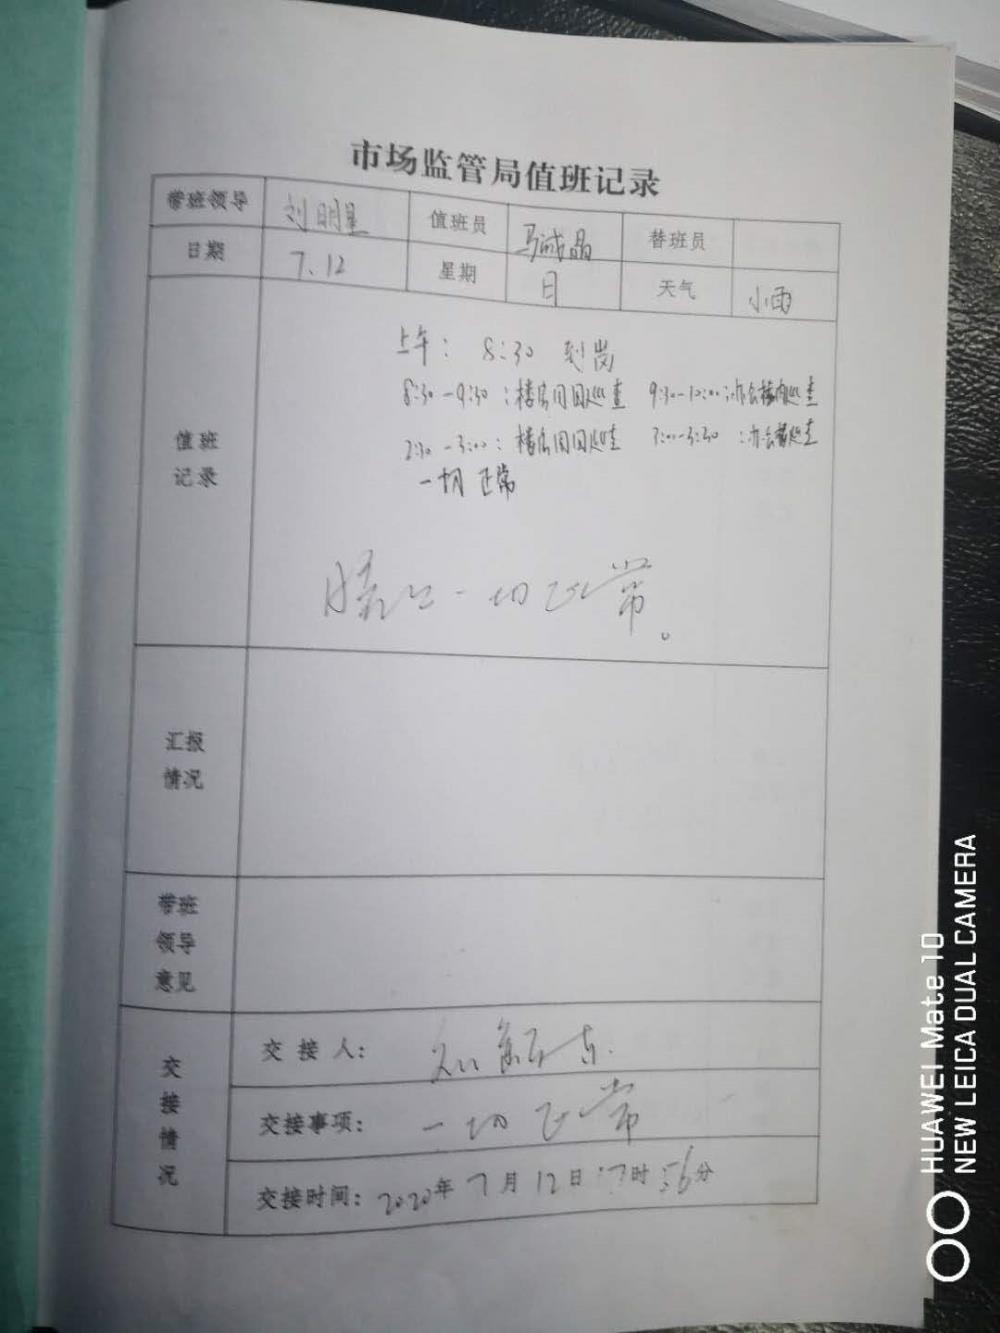 市场监管局值班记录
带班领导 刘明星 值班员 马诚晶 替班员
日期 7.12 星期 日 天气 小雨
值班记录
上午: 8:30 到岗
8:30-9:30:楼房周围巡查 9:30-10:00:办公楼内巡查
2:30-3:00:楼房周围巡查 3:00-3:30:办公楼巡查
一切正常
晚上一切正常。
汇报情况
带班领导意见
交接情况
交接人:
交接事项: 一切正常
交接时间: 2020年7月12日17时56分
HUAWEI Mate 10
NEW LEICA DUAL CAMERA